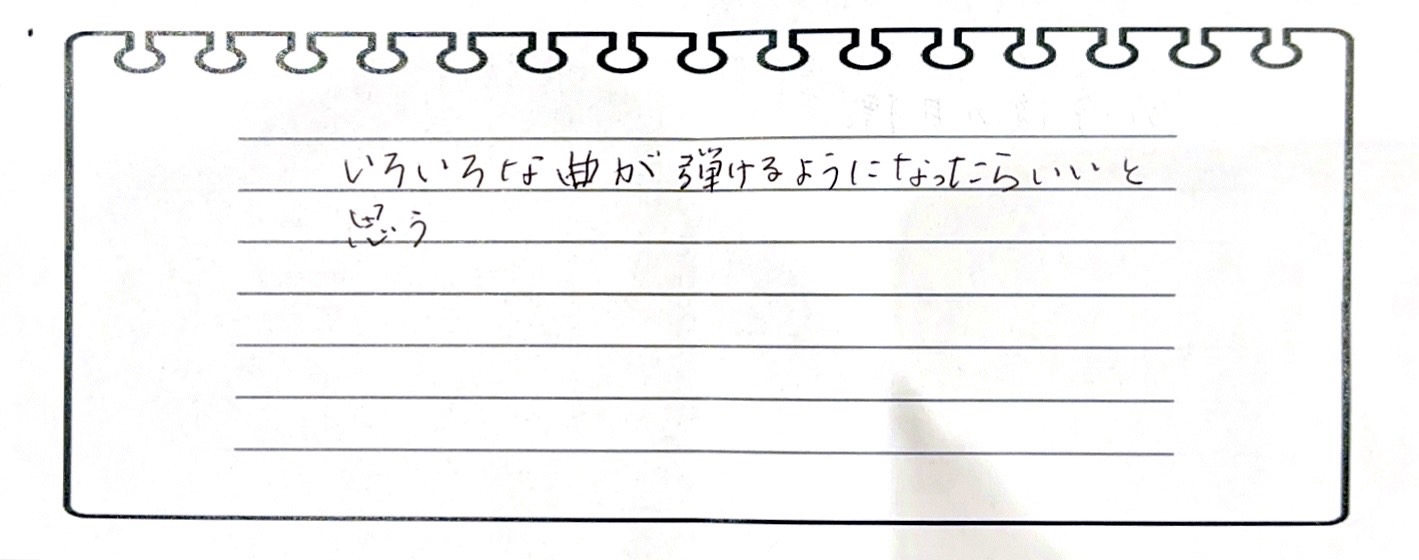 いろいろな曲が弾けるようになったらいいと
思う